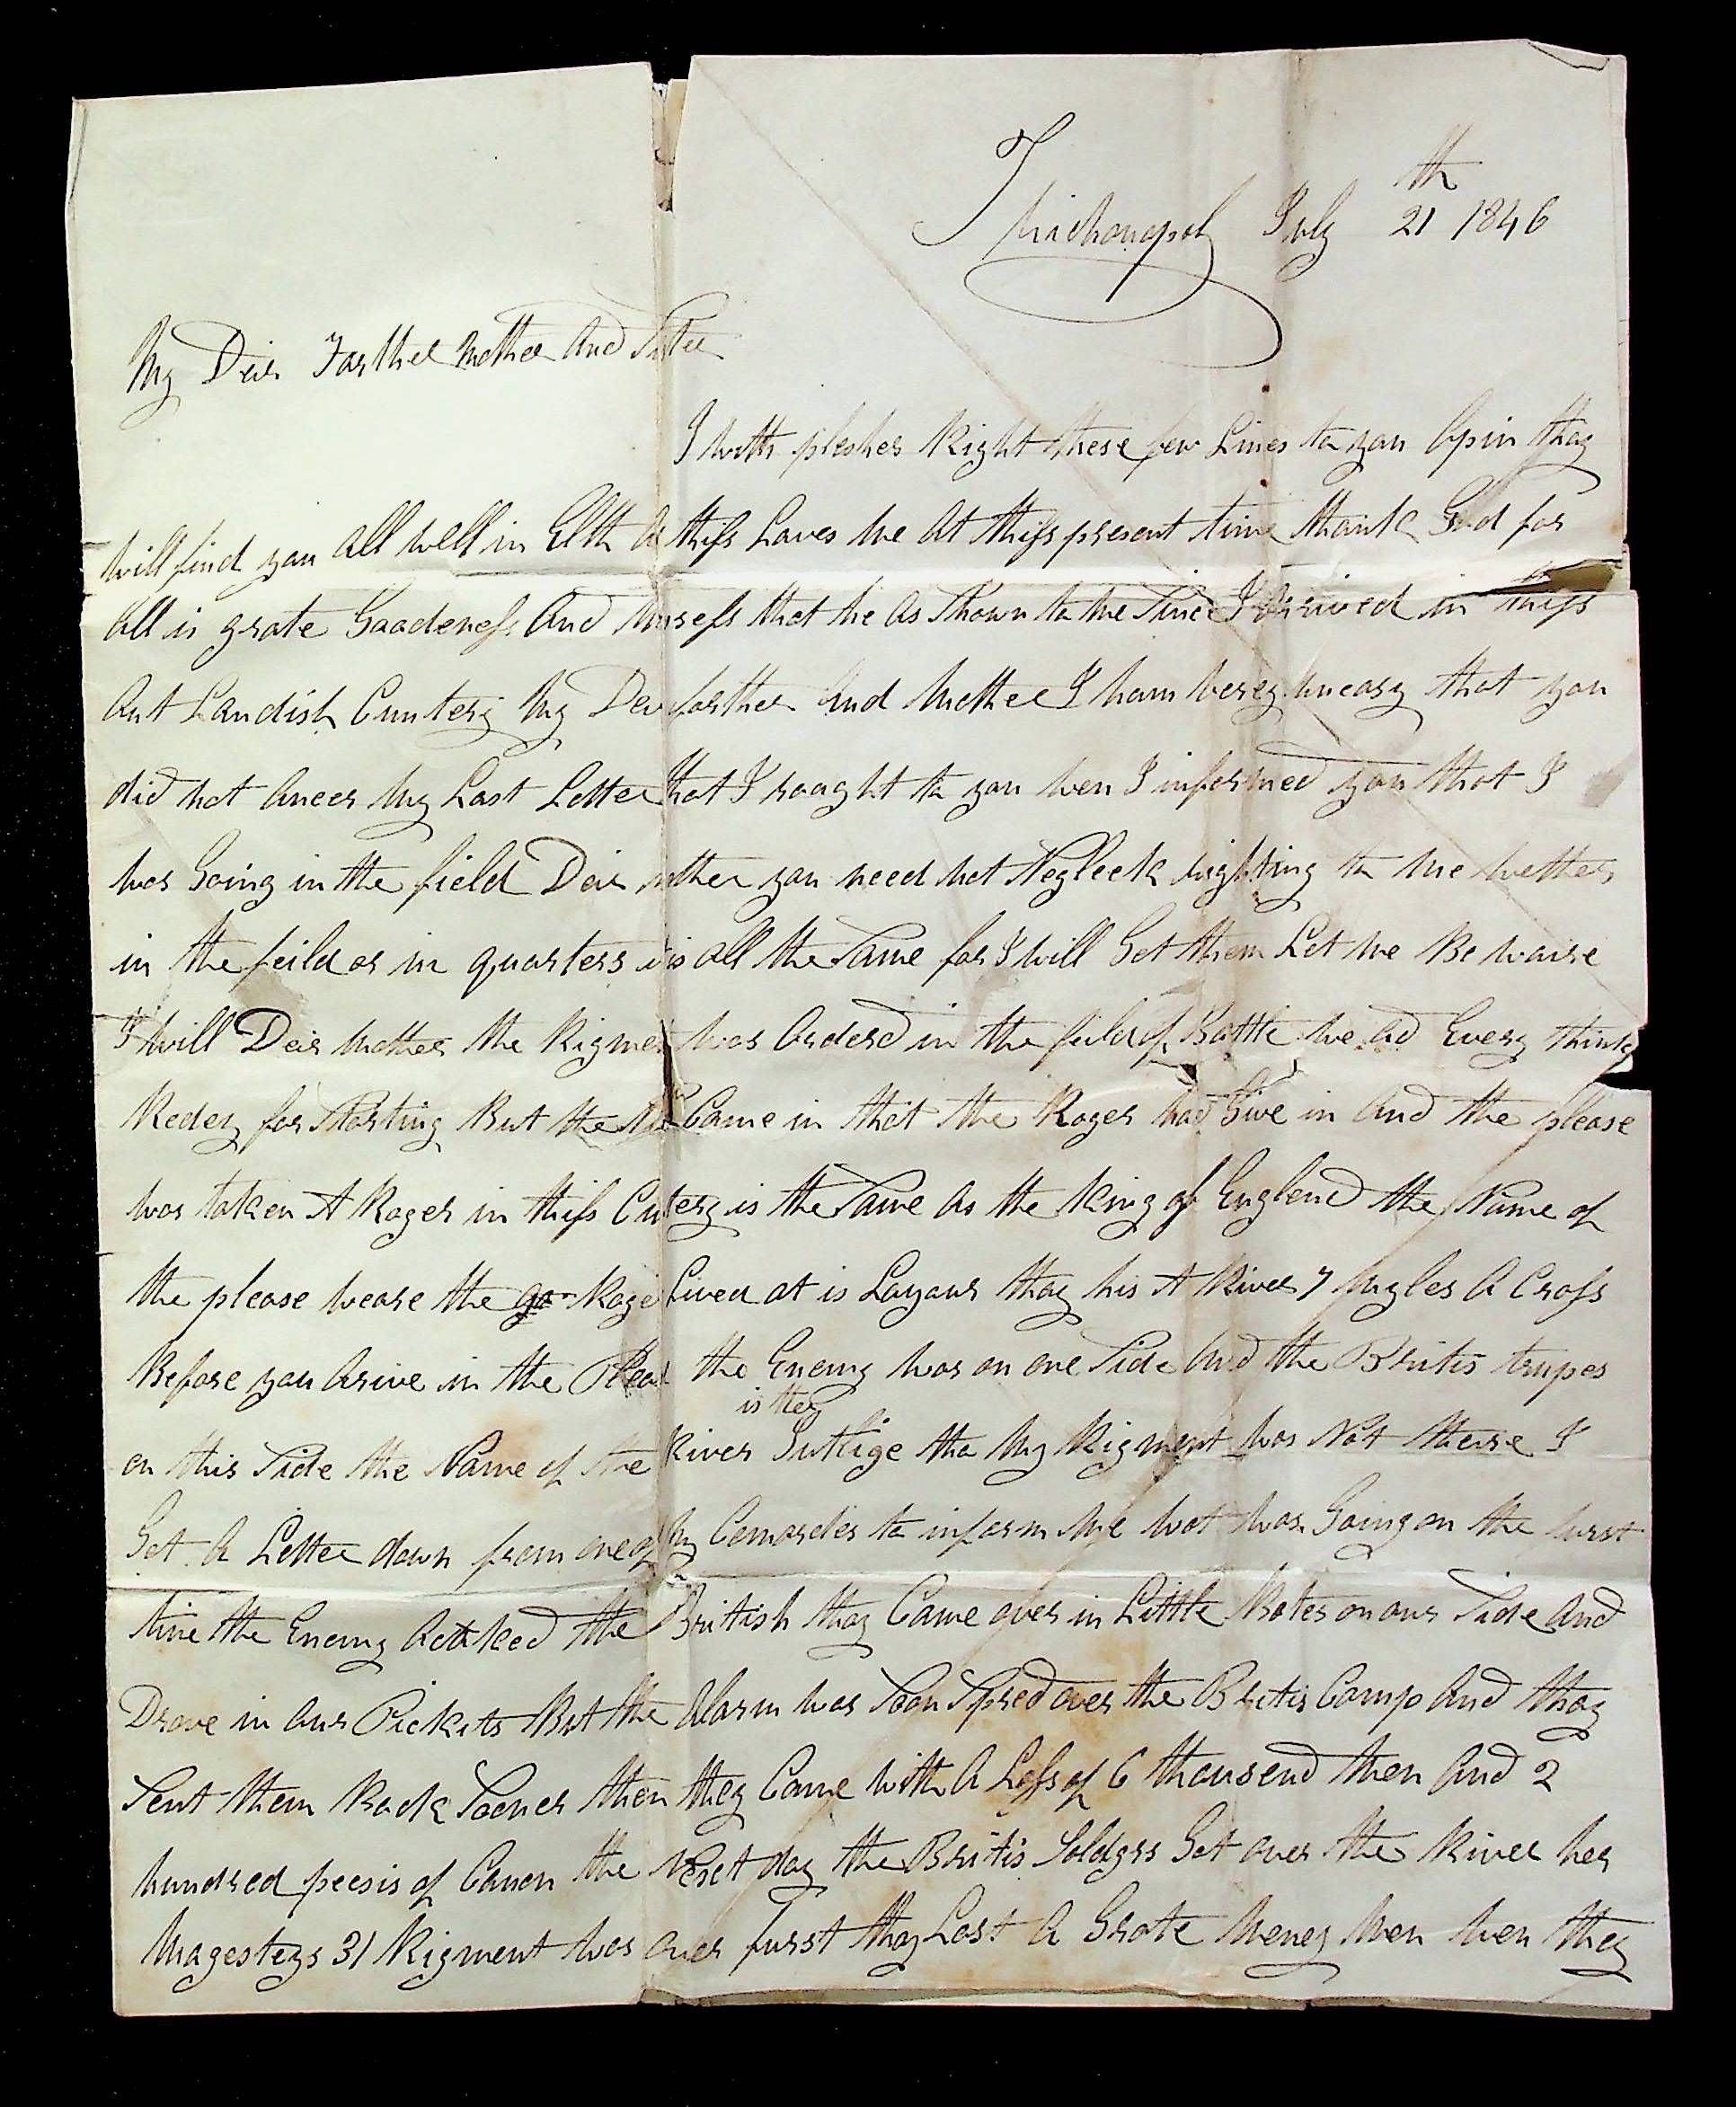 th
Trichonopoly July 21 1846
My Deir Farther Mother And Sister
I with plesher Right these few Lines to you Opin thay
will find you all well in Elth As thiss Laves me At thiss present time thank God for
all is grate Goodeness And that he As Shown to me Since I Arrived in thiss
Out Landish Cuntery My Deir farther And Mother I ham verey uneasy that you
did not Ancer My Last Letter that I rought to you wen I informed you that I
was Going in the field Deir mother you need not Neglect righting to me wether
in the feild or in quarters it is all the Same for I will Get them Let me Be ware
I will Deir Mother the Rigment was Orderd in the feild of Battle we ad Every think
Redey for Starting But the Came in that the Roger had Give in And the please
was taken A Roger in thiss Cuntery is the Same As the King of Englend the Name of
the please weare the Roger Lived at is Layour thay his A River 7 Myles A Cross
Before you Arive in the the Enemy was on one Side And the Britis trupes
is they
on this Side the Name of the River Sutlige tho My Rigment was Not there I
Got A Letter down from one of My Comordes to inform Me wot was Going on the furst
time the Enemy Actked the British thay Came over in Little Botes on our Side And
Drove in our Pickits But the Alarm was Soon Spred over the Britis Camp And thay
Sent them Back Sooner then they Came with A Loss of 6 thousend Men And 2
hundred peesis of Canon the Next day the Britis Soldgrs Got over the River her
Magesteys 31 Rigment was over furst thay Lost A Grate Meney Men wen they